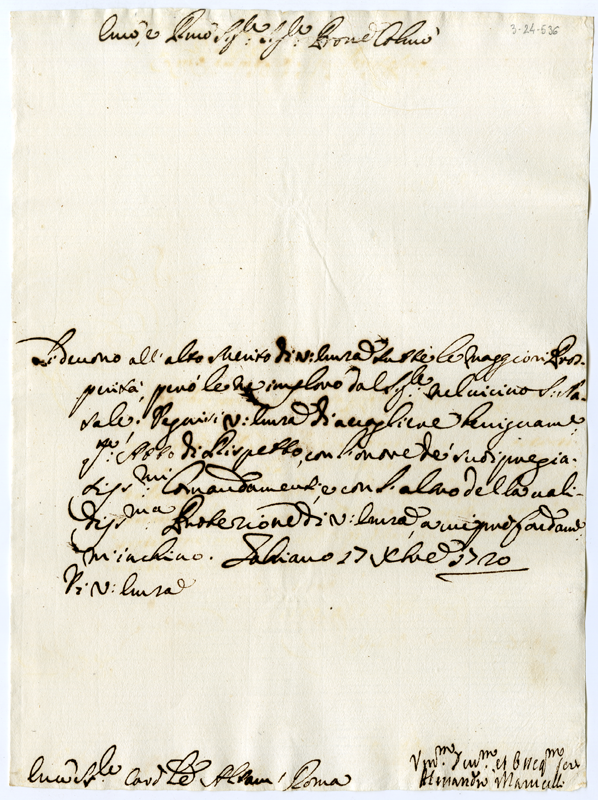 Emo, e Rmo Sig.re Sig.re Prone Colmo
3-24-636
Si devono all'alto Merito di V: Emza tutte le maggiori Pros-
perità, però le ne imploro dal Sig.re nel vicino S. Na-
tale. Degnisi V: Emza di accogliere benignam.e
q.o Atto di Rispetto, con l'onore de' suoi pregia-
tiss.mi Comandamenti, e con l'altro della vali-
diss.ma Protezione di V: Emza, a cui profondam.e
m'inchino. Fabriano 17 Xbre 1720
Di V: Emza
Emo Sig.re Card.le Albani Roma
Um.mo Dev.mo et Obblig.mo Ser.e
Alessandro